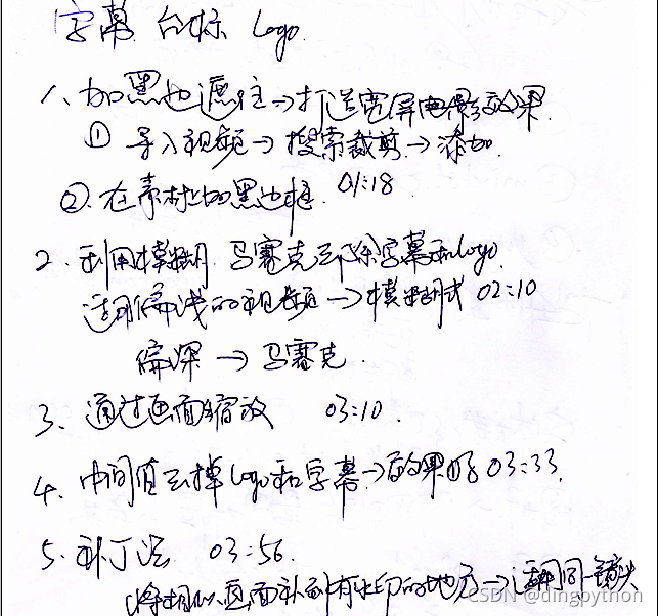 字幕 台标 logo.
1、加黑边遮挡→打造宽屏电影效果
① 导入视频→搜索裁剪→添加
②. 在素材上加黑边框 01:18
2. 利用模糊. 马赛克去除字幕和logo.
适用偏浅的视频→模糊式 02:10
偏深→马赛克.
3. 通过画面缩放 03:10.
4. 中间值去掉logo和字幕→效果好 03:33.
5. 补丁法 03:56.
将相似画面补到有水印的地方→适用同一镜头
CSDN @dingpython